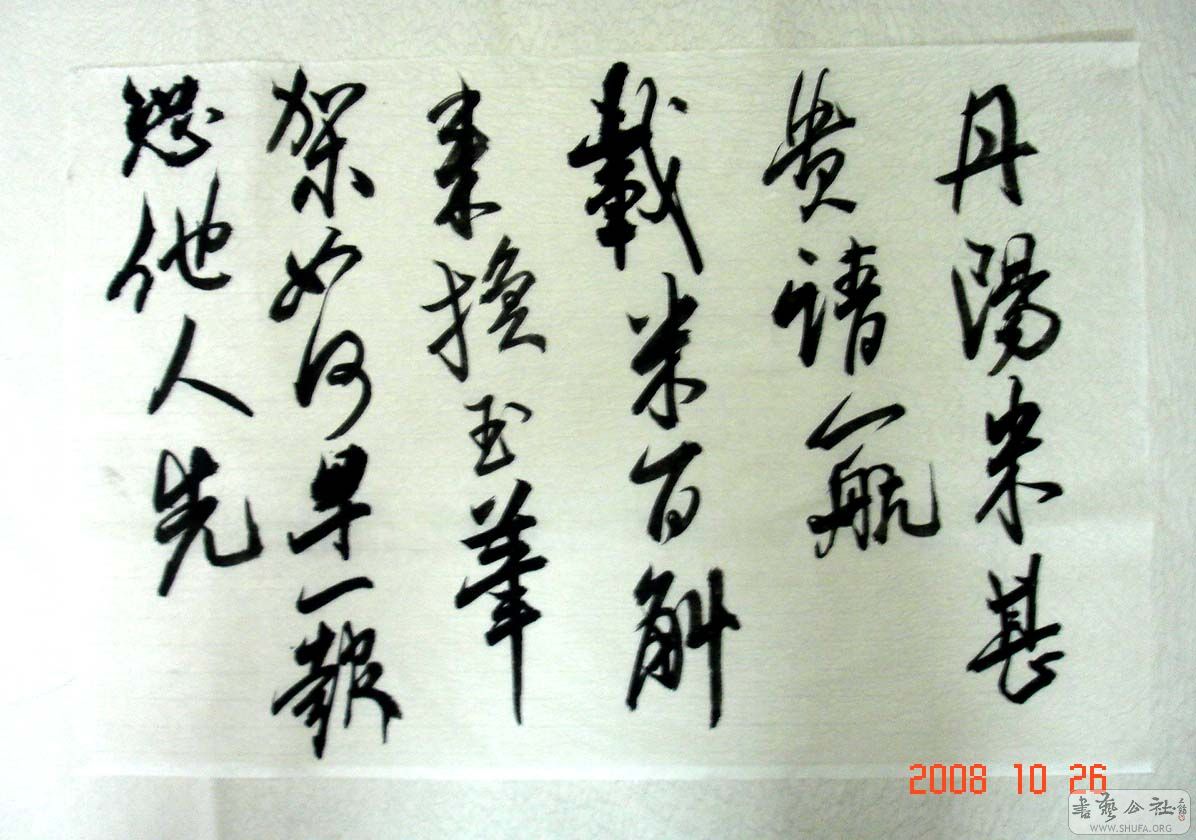 丹陽米甚
貴請一航
載米百斛
来換玉筆
架如何早一報
恐他人先
2008 10 26
書藝公社
WWW.SHUFA.ORG